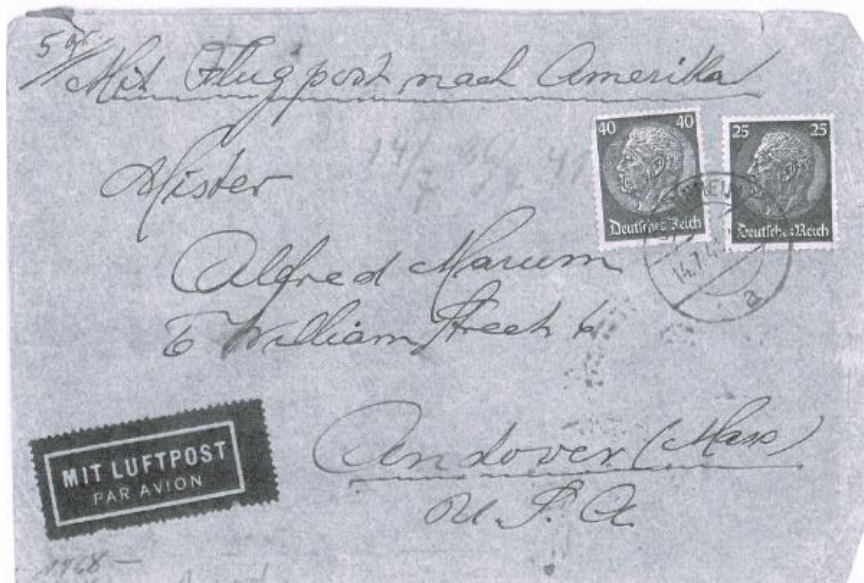 5 gr.
Mit Flugpost nach Amerika
40 40
Deutsches Reich
25 25
Deutsches Reich
14.7.4
a
Mister
Alfred Marum
6 William Street 6
Andover (Mass)
U.S.A
MIT LUFTPOST
PAR AVION
1968 —